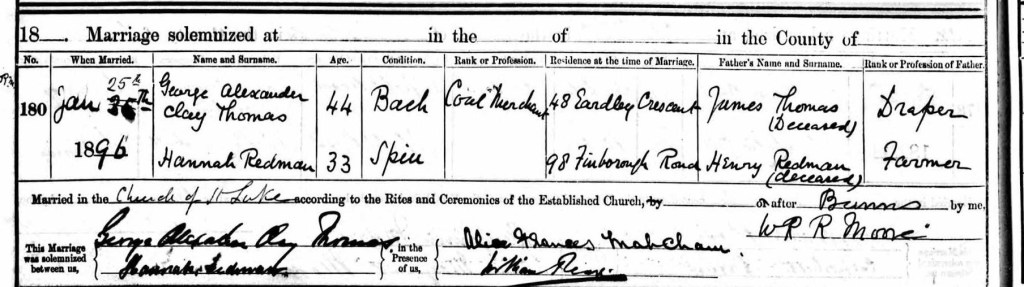 18 . Marriage solemnized at in the of in the County of
No. When Married. Name and Surname. Age. Condition. Rank or Profession. Residence at the time of Marriage. Father's Name and Surname. Rank or Profession of Father.
180 Jan 25th George Alexander Clay Thomas 44 Bach Coal Merchant 48 Eardley Crescent James Thomas (Deceased) Draper
1896 Hannah Redman 33 Spin 98 Finborough Road Henry Redman (deceased) Farmer
Married in the Church of St Luke according to the Rites and Ceremonies of the Established Church, by or after Banns by me,
W R R Moore
This Marriage was solemnized between us, George Alexander Clay Thomas Hannah Redman in the Presence of us, Alice Frances William